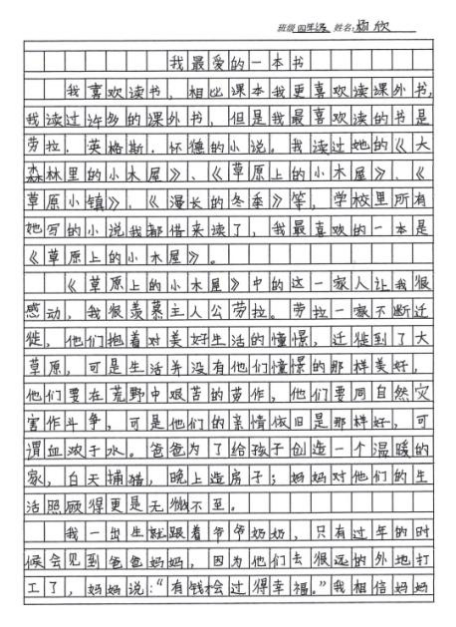 班级 四年级 姓名: 欣
我最爱的一本书
我喜欢读书，相比课本我更喜欢读课外书，
我读过许多的课外书，但是我最喜欢读的书是
劳拉．英格斯．怀德的小说。我读过她的《大
森林里的小木屋》、《草原上的小木屋》、《
草原小镇》、《漫长的冬季》等，学校里所有
她写的小说我都借来读了，我最喜欢的一本是
《草原上的小木屋》。
《草原上的小木屋》中的这一家人让我很
感动，我很羡慕主人公劳拉。劳拉一家不断迁
徙，他们抱着对美好生活的憧憬，迁徙到了大
草原，可是生活并没有他们憧憬的那样美好，
他们要在荒野中艰苦的劳作，他们要同自然灾
害作斗争，可是他们的亲情依旧是那样好，可
谓血浓于水。爸爸为了给孩子创造一个温暖的
家，白天捕猎，晚上造房子；妈妈对他们的生
活照顾得更是无微不至。
我一出生就跟着爷爷奶奶，只有过年的时
候会见到爸爸妈妈，因为他们去很远的外地打
工了，妈妈说：“有钱才会过得幸福。”我相信妈妈